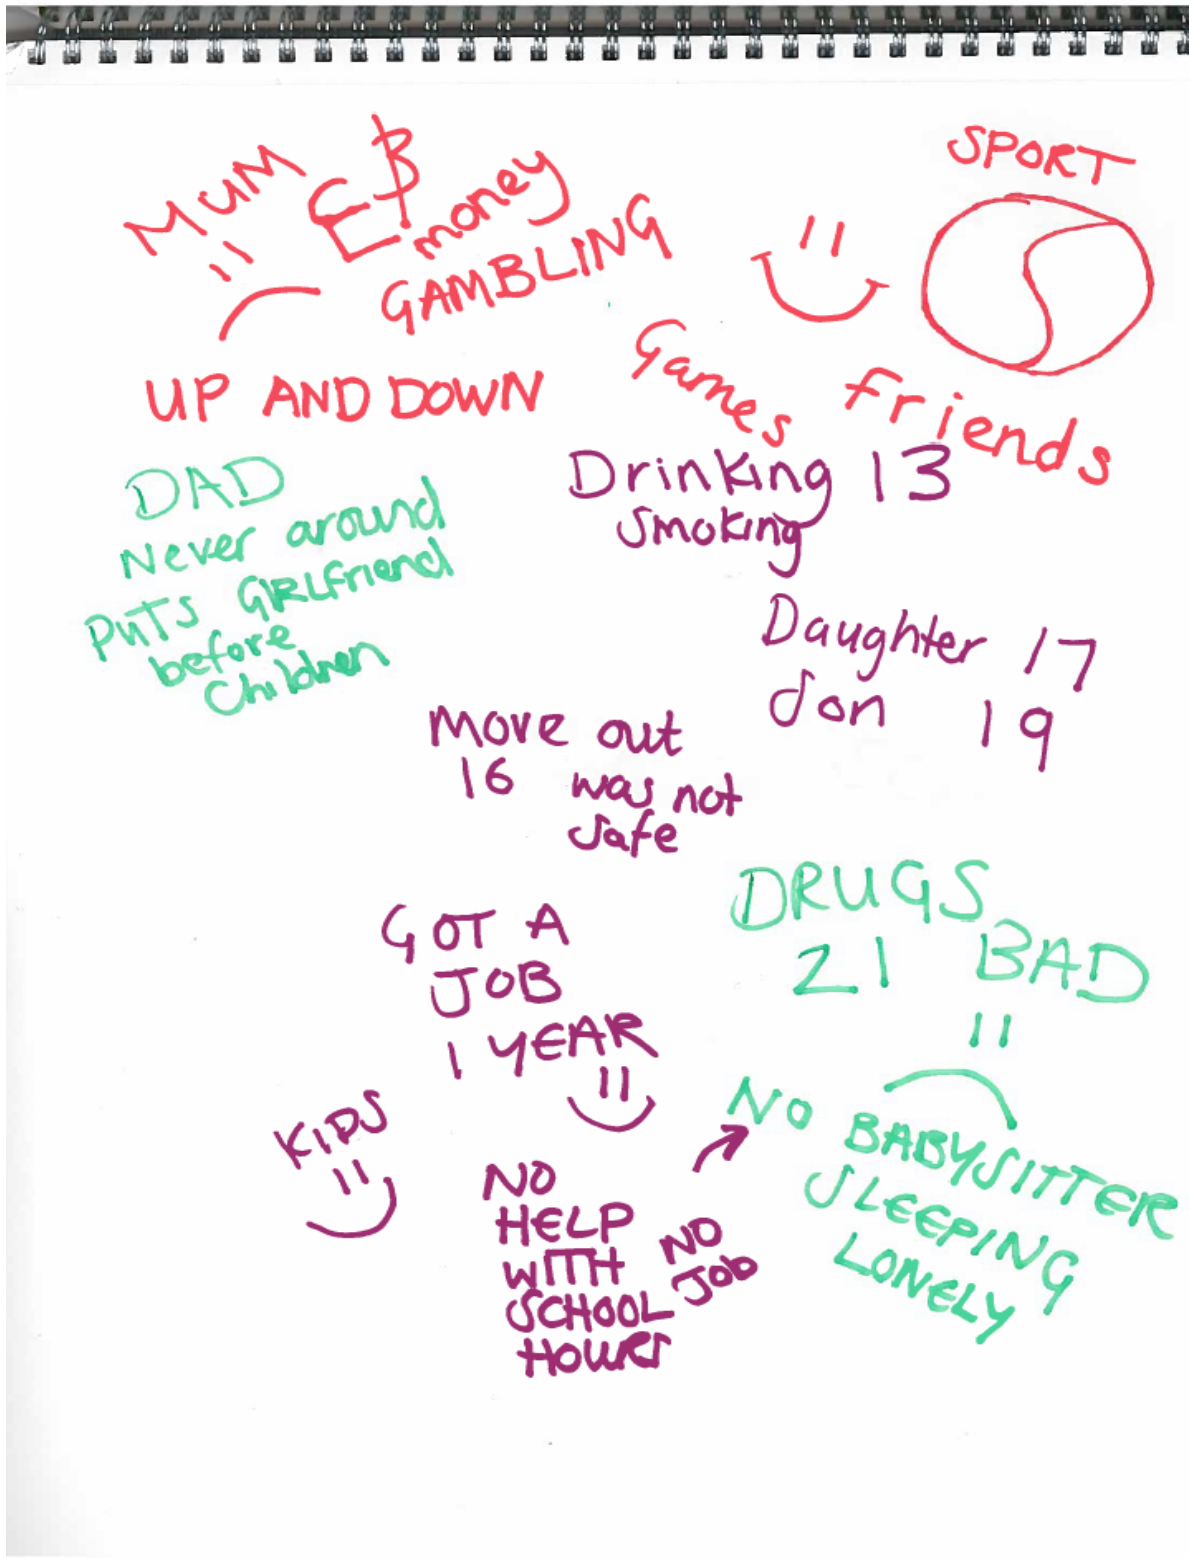 MUM
£$
money
GAMBLING
UP AND DOWN
SPORT
Games
friends
DAD
Never around
PUTS GIRLfriend
before
Children
Drinking 13
Smoking
Daughter 17
Son 19
Move out
16 was not
Safe
GOT A
JOB
1 YEAR
KIDS
NO
HELP
WITH
SCHOOL
HOURS
NO
JOb
DRUGS
21 BAD
NO BABYSITTER
SLEEPING
LONELY